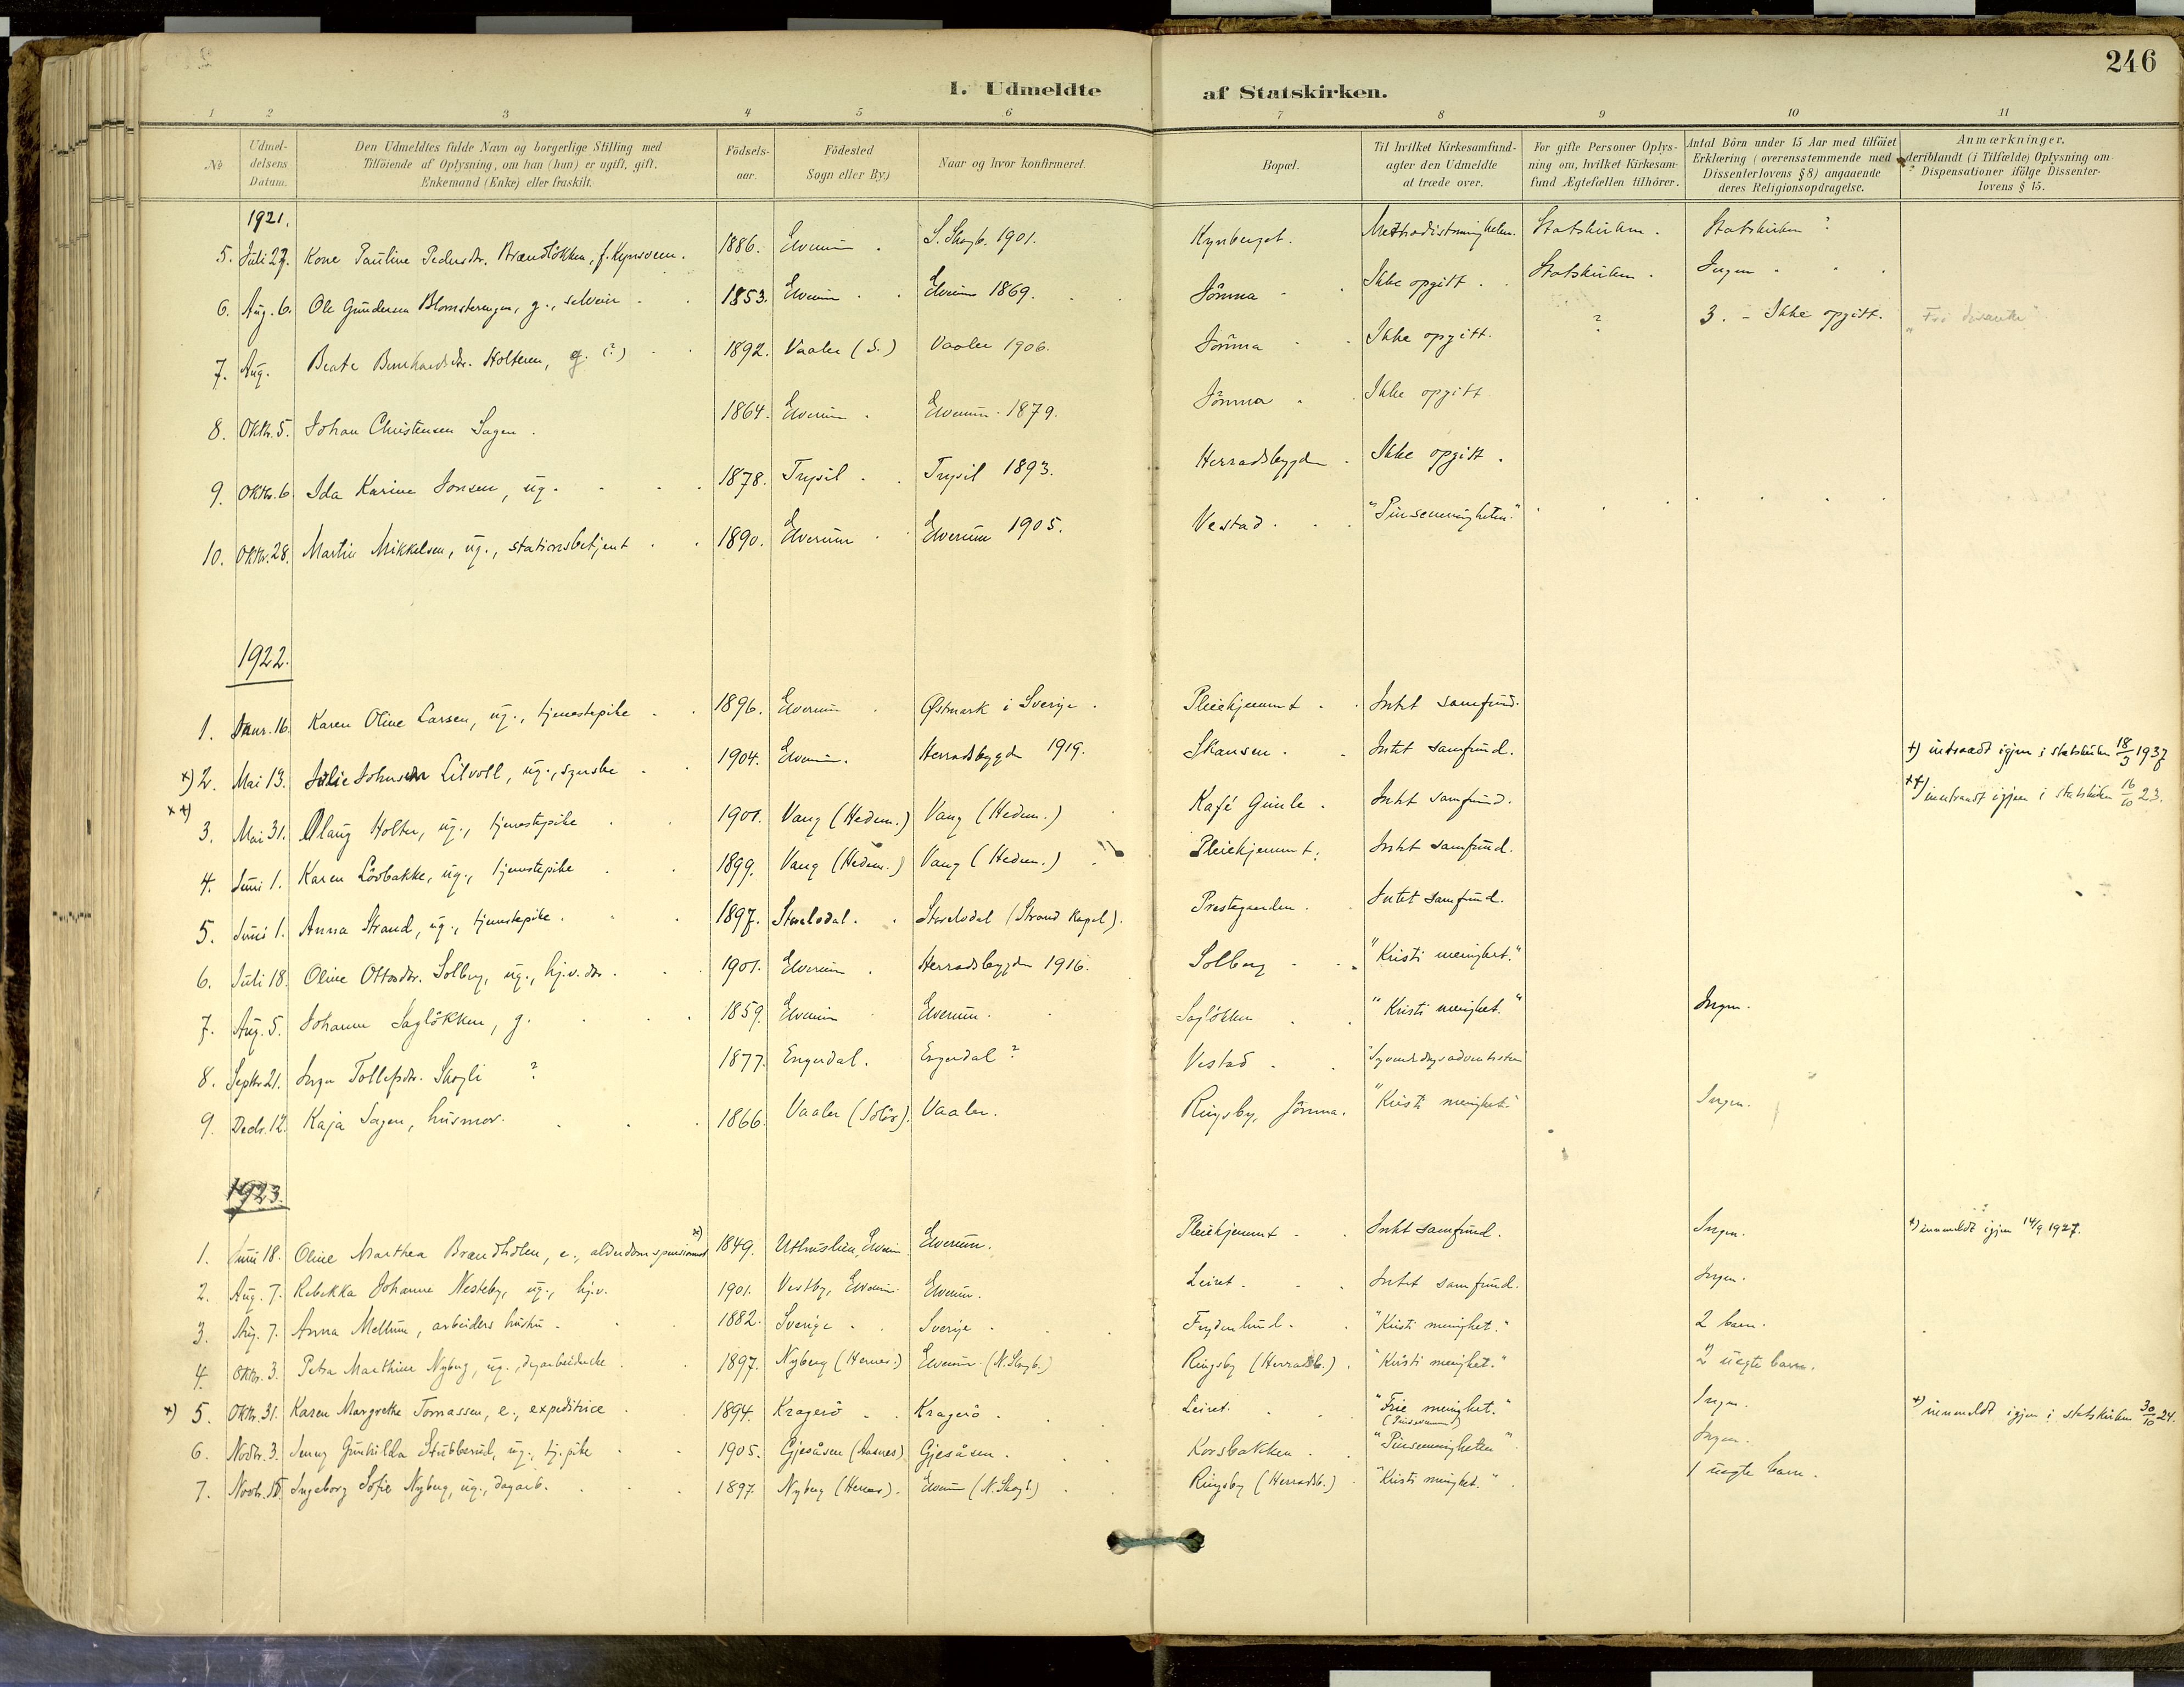 246
1. Udmeldte af Statskirken.
1 2 3 4 5 6 7 8 9 10 11
№
Udmel-
delsens
Datum.
Den Udmeldtes fulde Navn og borgerlige Stilling med
Tilföiende af Oplysning, om han (hun) er ugift, gift,
Enkemand (Enke) eller fraskilt.
Födsels-
aar.
Födested
Sogn eller By.)
Naar og hvor konfirmeret.
Bopæl.
Til hvilket Kirkesamfund-
agter den Udmeldte
at træde over.
For gifte Personer Oplys-
ning om, hvilket Kirkesam-
fund Ægtefællen tilhörer.
Antal Börn under 15 Aar med tilföiet
Erklæring (overensstemmende med
Dissenterlovens § 8) angaaende
deres Religionsopdragelse.
Anmærkninger,
deriblandt (i Tilfælde) Oplysning om
Dispensationer ifölge Dissenter-
lovens § 15.
1921.
5. Juli 27. Kone Pauline Pedersdr. Brændlökken, f. Kynsveen. 1886. Elverum. S. Skogb. 1901. Kynberget. Methodistmenigheten. Statskirken. Statskirken ?
6. Aug. 6. Ole Gundersen Blomsterengen, g., selveier 1853. Elverum. Elverum 1869. Jömna Ikke opgitt. Statskirken. Ingen
7. Aug. Beate Bernhardsdr. Holteren, g. (?) 1892. Vaaler (S.) Vaaler 1906. Jömna Ikke opgitt. ? 3. - Ikke opgitt. "Fri
8. Oktbr. 5. Johan Christensen Sagen. 1864. Elverum. Elverum 1879. Jömna Ikke opgitt
9. Oktbr. 6. Ida Karine Jonsen, ug. 1878. Trysil. Trysil 1893. Herradsbygden. Ikke opgitt.
10. Oktbr. 28. Martin Mikkelsen, ug., stationsbetjent 1890. Elverum Elverum 1905. Vestad. "Pinsemenigheten."
1922.
1. Janr. 16. Karen Oline Larsen, ug., tjenestepike 1896. Elverum Østmark i Sverige. Pleiehjemmet Intet samfund.
x) 2. Mai 13. Julie Johnsdr Litvoll, ug., syerske 1904. Elverum. Herradsbygd 1919. Skansen. Intet samfund. +) indtraadt igjen i statskirken 18/3 1937
x+) 3. Mai 31. Olaug Holter, ug., tjenestepike 1901. Vang (Hedem.) Vang (Hedem.) Kafé Gimle. Intet samfund. x+) inntraadt igjen i statskirken 16/10 23.
4. Juni 1. Karen Lövbakke, ug., tjenestepike 1899. Vang (Hedem.) Vang (Hedem.) Pleiehjemmet. Intet samfund.
5. Juni 1. Anna Strand, ug., tjenestepike. 1897. Storelvdal. Storelvdal (Strand Kapel). Prestegaarden. Intet samfund.
6. Juli 18. Oline Ottosdr. Solberg, ug., hj.v. dr. 1901. Elverum. Herradsbygden 1916. Solberg "Kristi menighet."
7. Aug. 5. Johanne Saglökken, g. 1859. Elverum Elverum. Saglökken "Kristi menighet." Ingen.
8. Septbr. 21. Inger Tollefsdr. Skogli ? 1877. Engerdal. Engerdal ? Vestad "Syvendedagsadventisten"
9. Decbr. 12. Kaja Sagen, husmor. 1866. Vaaler (Solör). Vaaler. Ringsby, Jömna. "Kristi menighet." Ingen.
1923.
1. Juni 18. Oline Marthea Brændholen, e., alderdomspensionist x) 1849. Uthuslien, Elverum Elverum. Pleiehjemmet Intet samfund. Ingen. x) innmeldt igjen 14/9 1927.
2. Aug. 7. Rebekka Johanne Nesteby, ug., hj.v. 1901. Vestby, Elverum Elverum. Leiret. Intet samfund. Ingen.
3. Aug. 7. Anna Mellum, arbeiders hustru. 1882. Sverige. Sverige. Frydenlund. "Kristi menighet." 2 barn.
4. Oktbr. 3. Petra Marthine Nyberg, ug., dagarbeiderske 1897. Nyberg (Hernes.) Elverum. (N. Skogb.) Ringsby (Herradsb.). "Kristi menighet." 2 uegte barn.
+) 5. Oktbr. 31. Karen Margrethe Tomassen, e., expeditrice 1894. Kragerö. Kragerö. Leiret. "Frie menighet." Ingen. +) innmeldt igjen i statskirken 30/10 24.
6. Novbr. 3. Jenny Gunhilda Stubberud, ug., tj.pike 1905. Gjesåsen (Aasnes) Gjesåsen. Korsbakken. "Pinsemenigheten" Ingen.
7. Novbr. 15. Ingeborg Sofie Nyberg, ug., dagarb. 1897. Nyberg (Hernes). Elverum (N. Skogb.) Ringsby (Herradsb.) "Kristi menighet." 1 uegte barn.